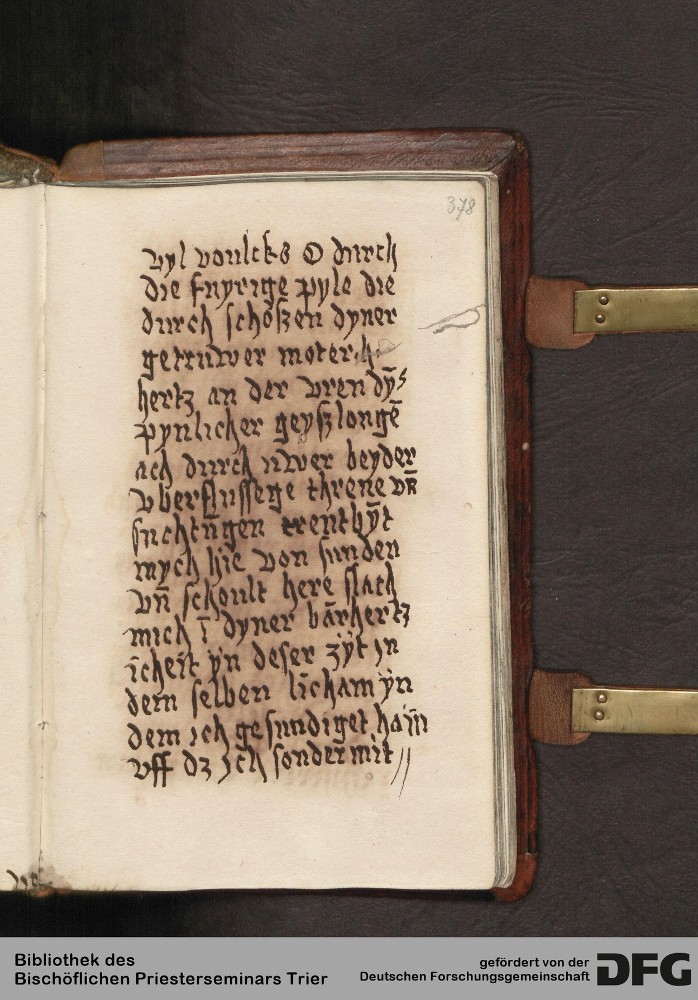 378
vyl voulcks O durch
die fuyrige pyle die
durch schoszen dyner
getruwer moter
hertz an der vren dȳs
pynlicher geyszlongē
ach durch uwer beyder
vberflussege threne vn̄
suchtūgen entbȳt
mych hie von sunden
vn̄ schoult here slach
mich ī dyner bārhertz
icheit yn deser zyt jn
dem selben licham yn
dem ich gesundiget hain
vff dz ich sonder mit
Bibliothek des
Bischöflichen Priesterseminars Trier
gefördert von der
Deutschen Forschungsgemeinschaft DFG